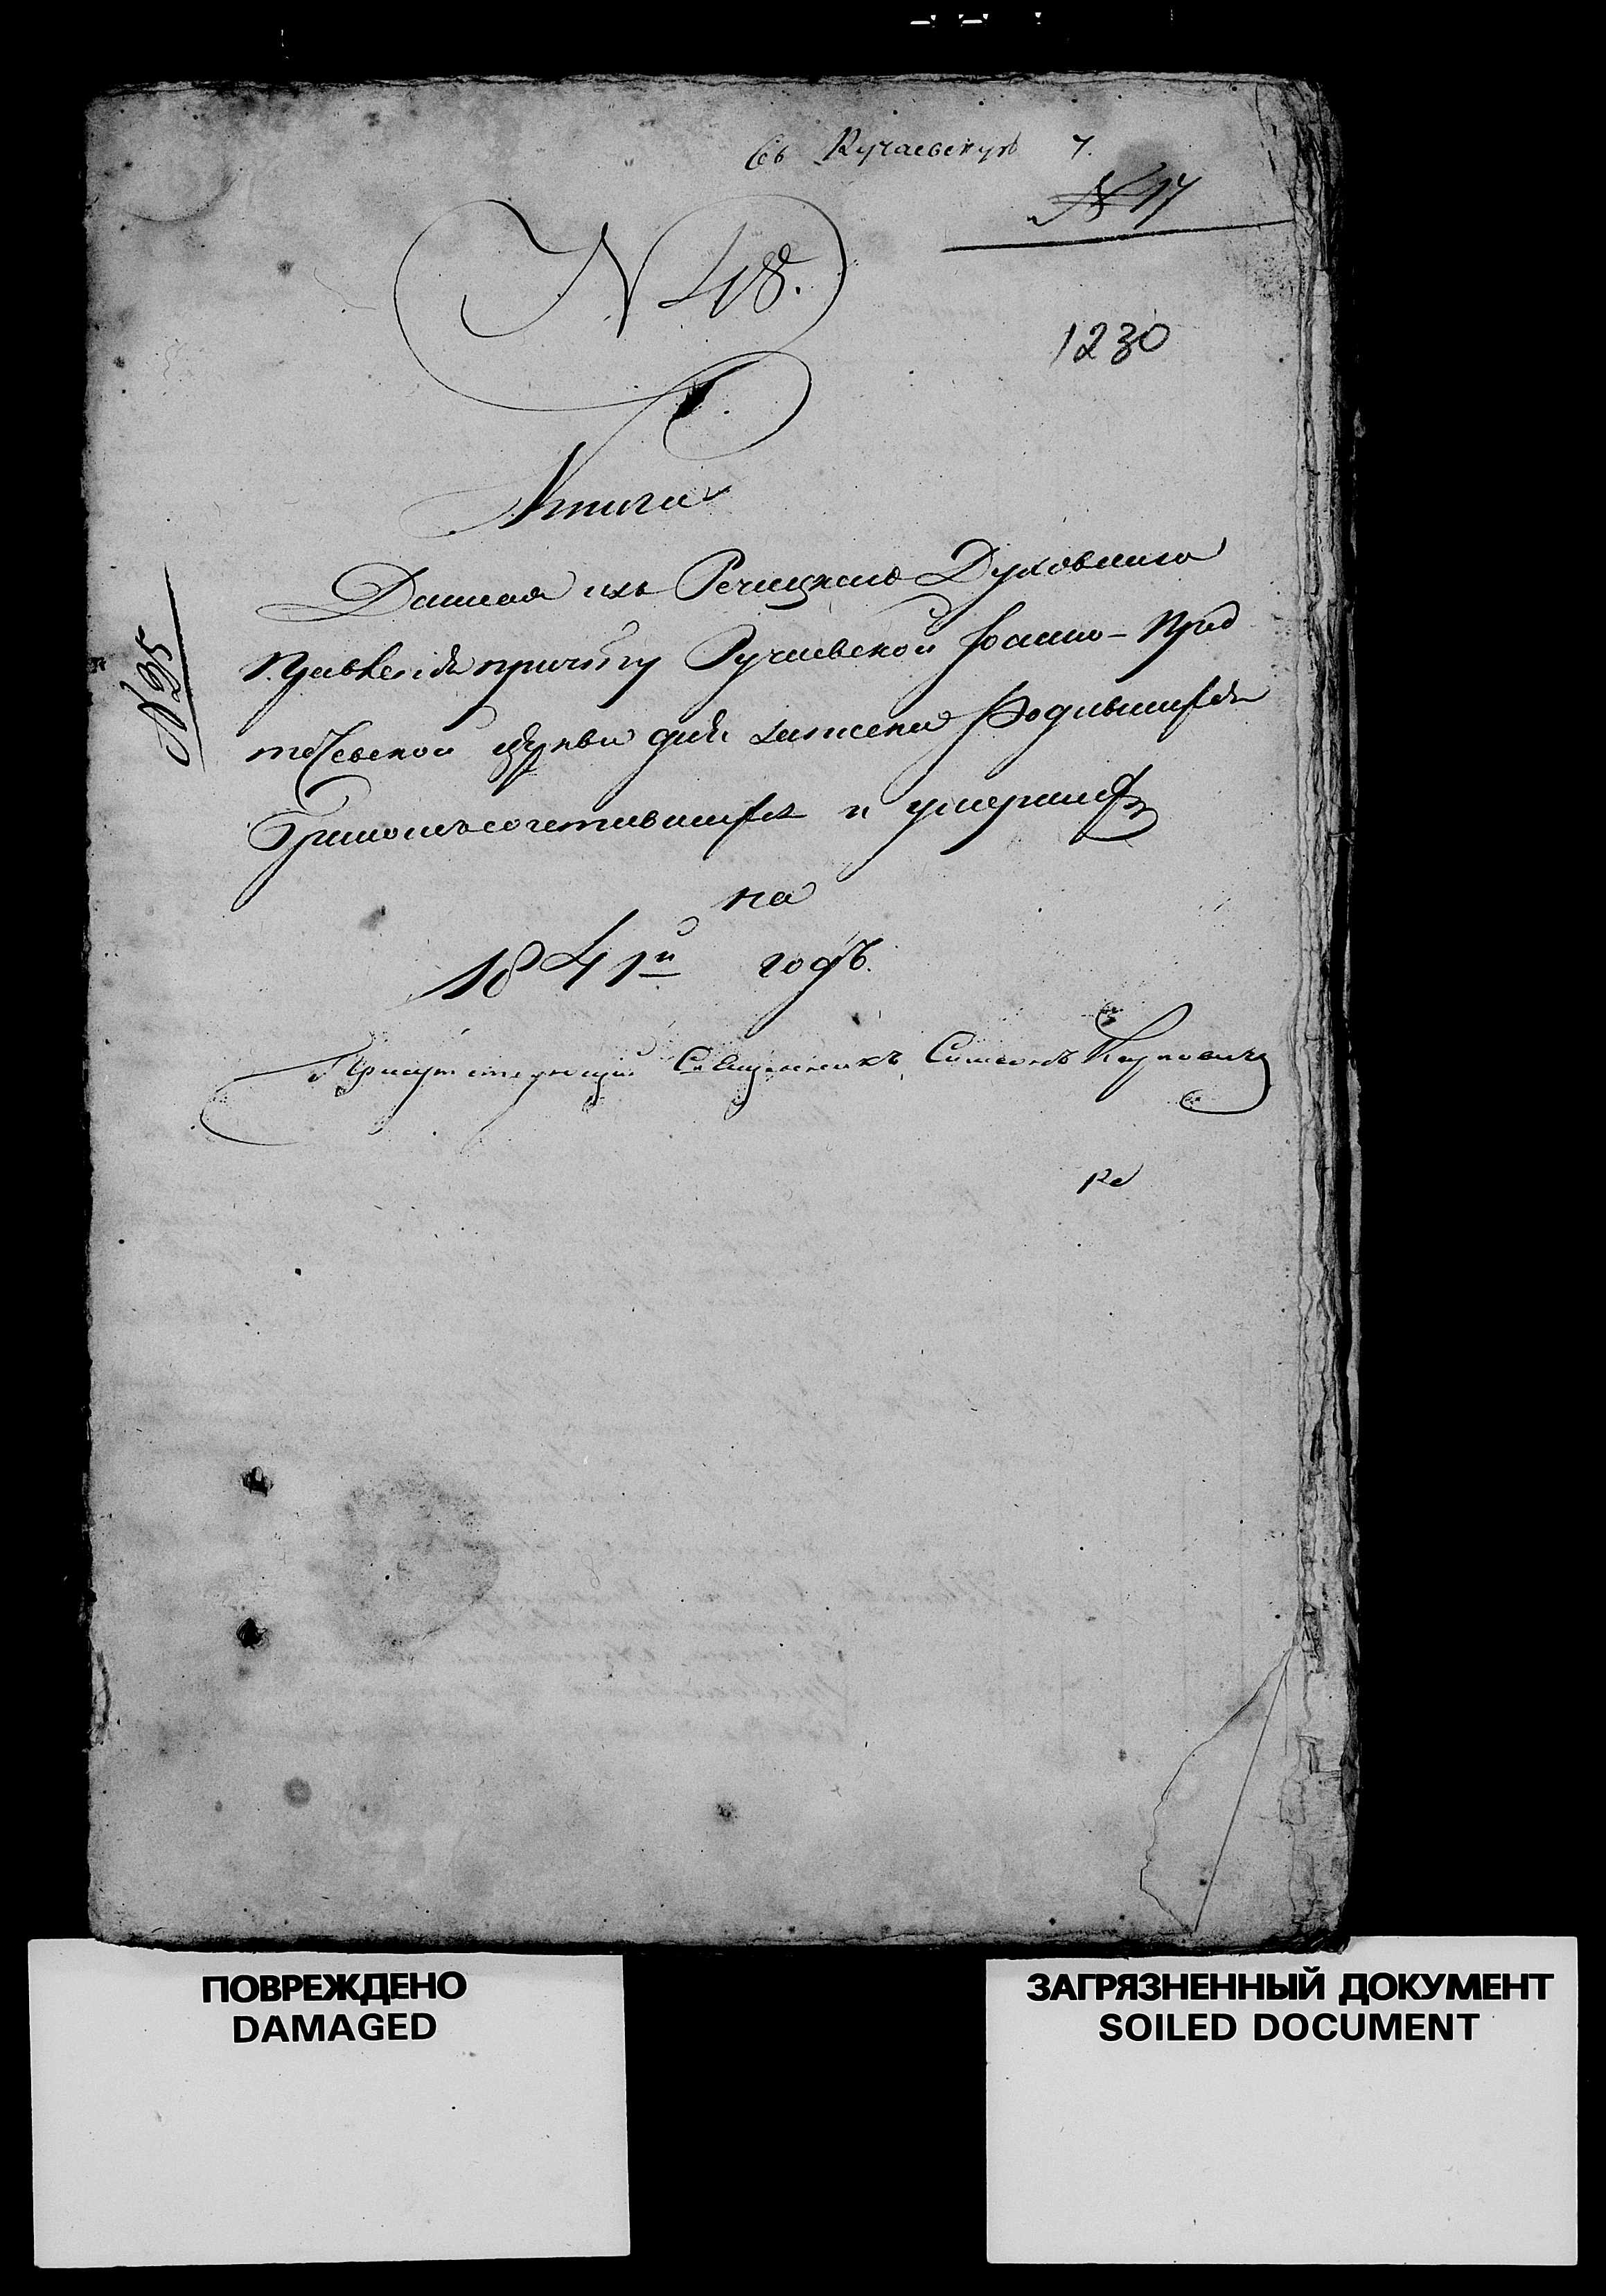 7.
№ 17
N 48.
1230
Книга
Данная изъ Речицкаго Духовнаго
Правленія причту Ручаевской Іоанно-Пред
течевской церкви для записки Родившихся
Бракомъ сочетавшихся и умершихъ
на
1841й годъ.
Присутствующій Священникъ Симеонъ Карповичъ
№ 35
ПОВРЕЖДЕНО
DAMAGED
ЗАГРЯЗНЕННЫЙ ДОКУМЕНТ
SOILED DOCUMENT